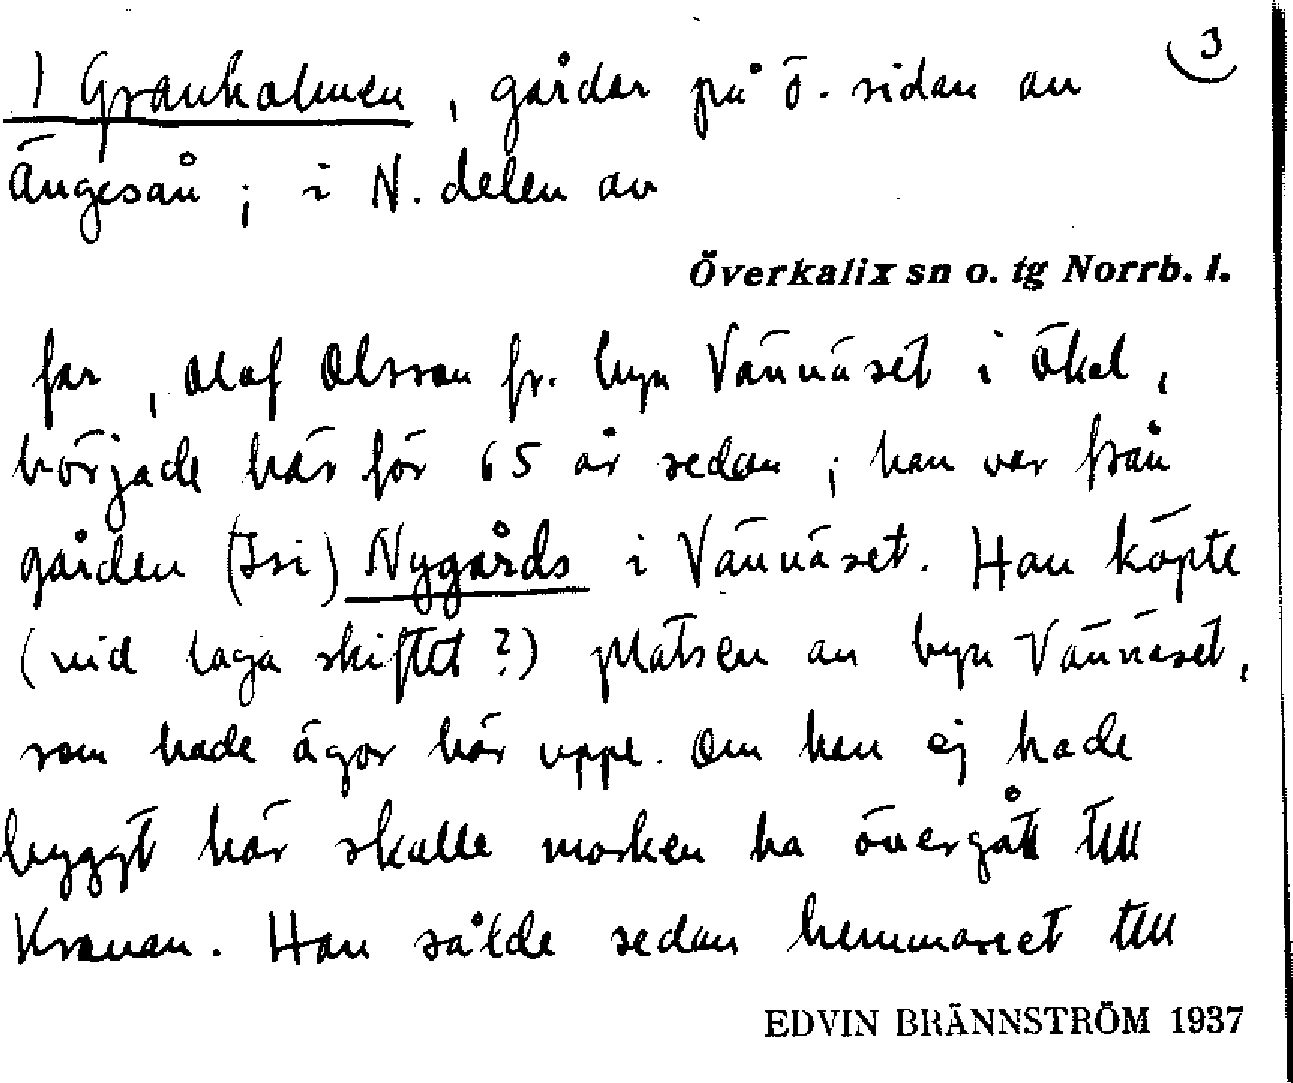 3
1 Granholmen, gårdar på ö. sidan av
Ängesån; i N. delen av
Överkalix sn o. tg Norrb. l.
far, Olof Olsson fr. byn Vännäset i Ökal,
började här för 65 år sedan; han var från
gården (Isi) Nygårds i Vännäset. Han köpte
(vid laga skiftet?) platsen av byn Vännäset,
som hade ägor här uppe. Om han ej hade
byggt här skulle marken ha övergått till
Kronan. Han sålde sedan hemmanet till
EDVIN BRÄNNSTRÖM 1937